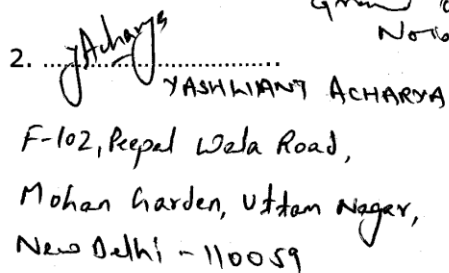 2. yAcharya
YASHWANT ACHARYA
F-102, Peepal Wala Road,
Mohan Garden, Uttam Nagar,
New Delhi - 110059